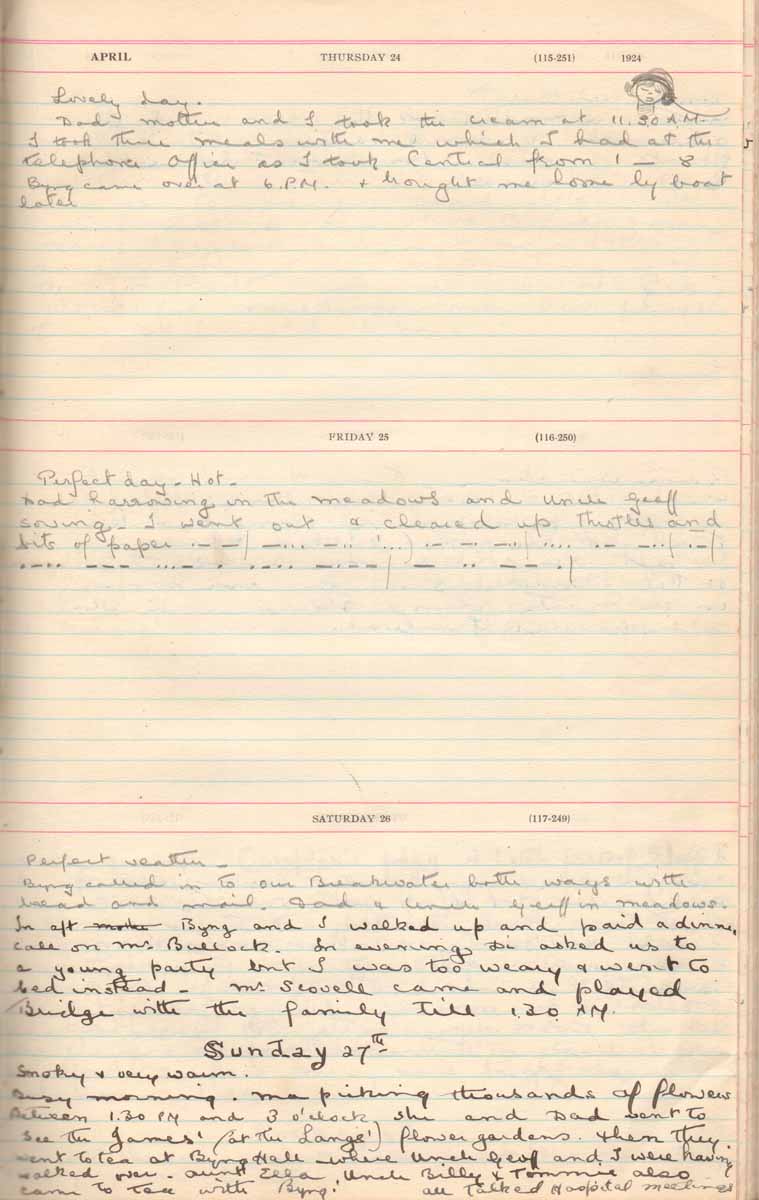 APRIL THURSDAY 24 (115-251) 1924
Lovely day.
Dad mother and I took the cream at 11.30 A.M.
I took three meals with me which I had at the
telephone Office as I took Central from 1 — 8
Byng came over at 6 P.M. & brought me home by boat
later
FRIDAY 25 (116-250)
Perfect day - Hot -
Dad harrowing in the meadows and Uncle Geoff
sowing - I went out & cleared up thistles and
bits of paper
SATURDAY 26 (117-249)
Perfect weather -
Byng called in to our Breakwater both ways with
bread and mail. Dad & Uncle Geoff in meadows.
In aft Byng and I walked up and paid a dinner
call on Mrs Bullock. In evening Di asked us to
a young party but I was too weary & went to
bed instead - Mr Scovell came and played
Bridge with the family till 1.30 A.M.
Sunday 27th
Smoky & very warm.
Busy morning. Ma picking thousands of flowers
Between 1.30 PM and 3 o'clock she and Dad went to
see the James' (at the Langs') flower gardens. then they
went to tea at Byng Hall where Uncle Geoff and I were having
walked over. Aunt Ella Uncle Billy & Tommie also
came to tea with Byng. all talked Hospital meetings